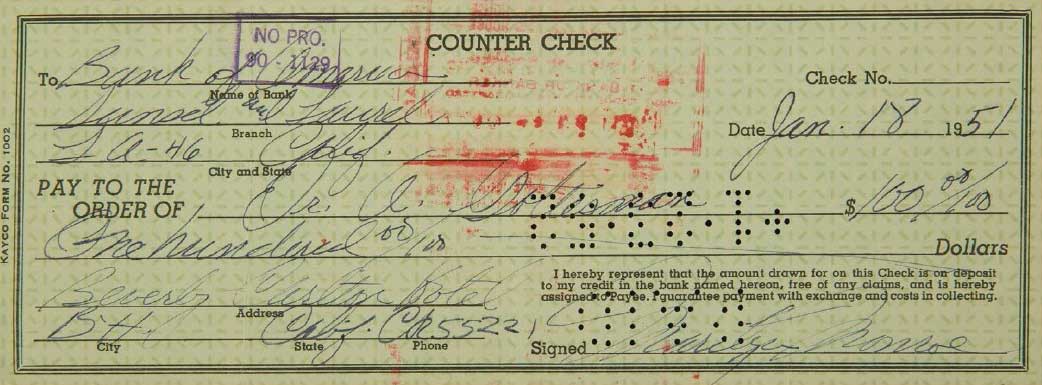 NO PRO.
90-1129
COUNTER CHECK
To Bank of America
Name of Bank
Check No.
Sunset and Laurel
Branch
Date Jan. 18 1951
L A-46 Calif.
City and State
PAY TO THE
ORDER OF Dr. A. Gottesman $100 00/100
One hundered 00/100 Dollars
I hereby represent that the amount drawn for on this Check is on deposit
to my credit in the bank named hereon, free of any claims, and is hereby
assigned to Payee. I guarantee payment with exchange and costs in collecting.
Beverly Carlton Hotel
Address
B.H. Calif. CR55221
City State Phone
Signed Marilyn Monroe
KAYCO FORM NO. 1002